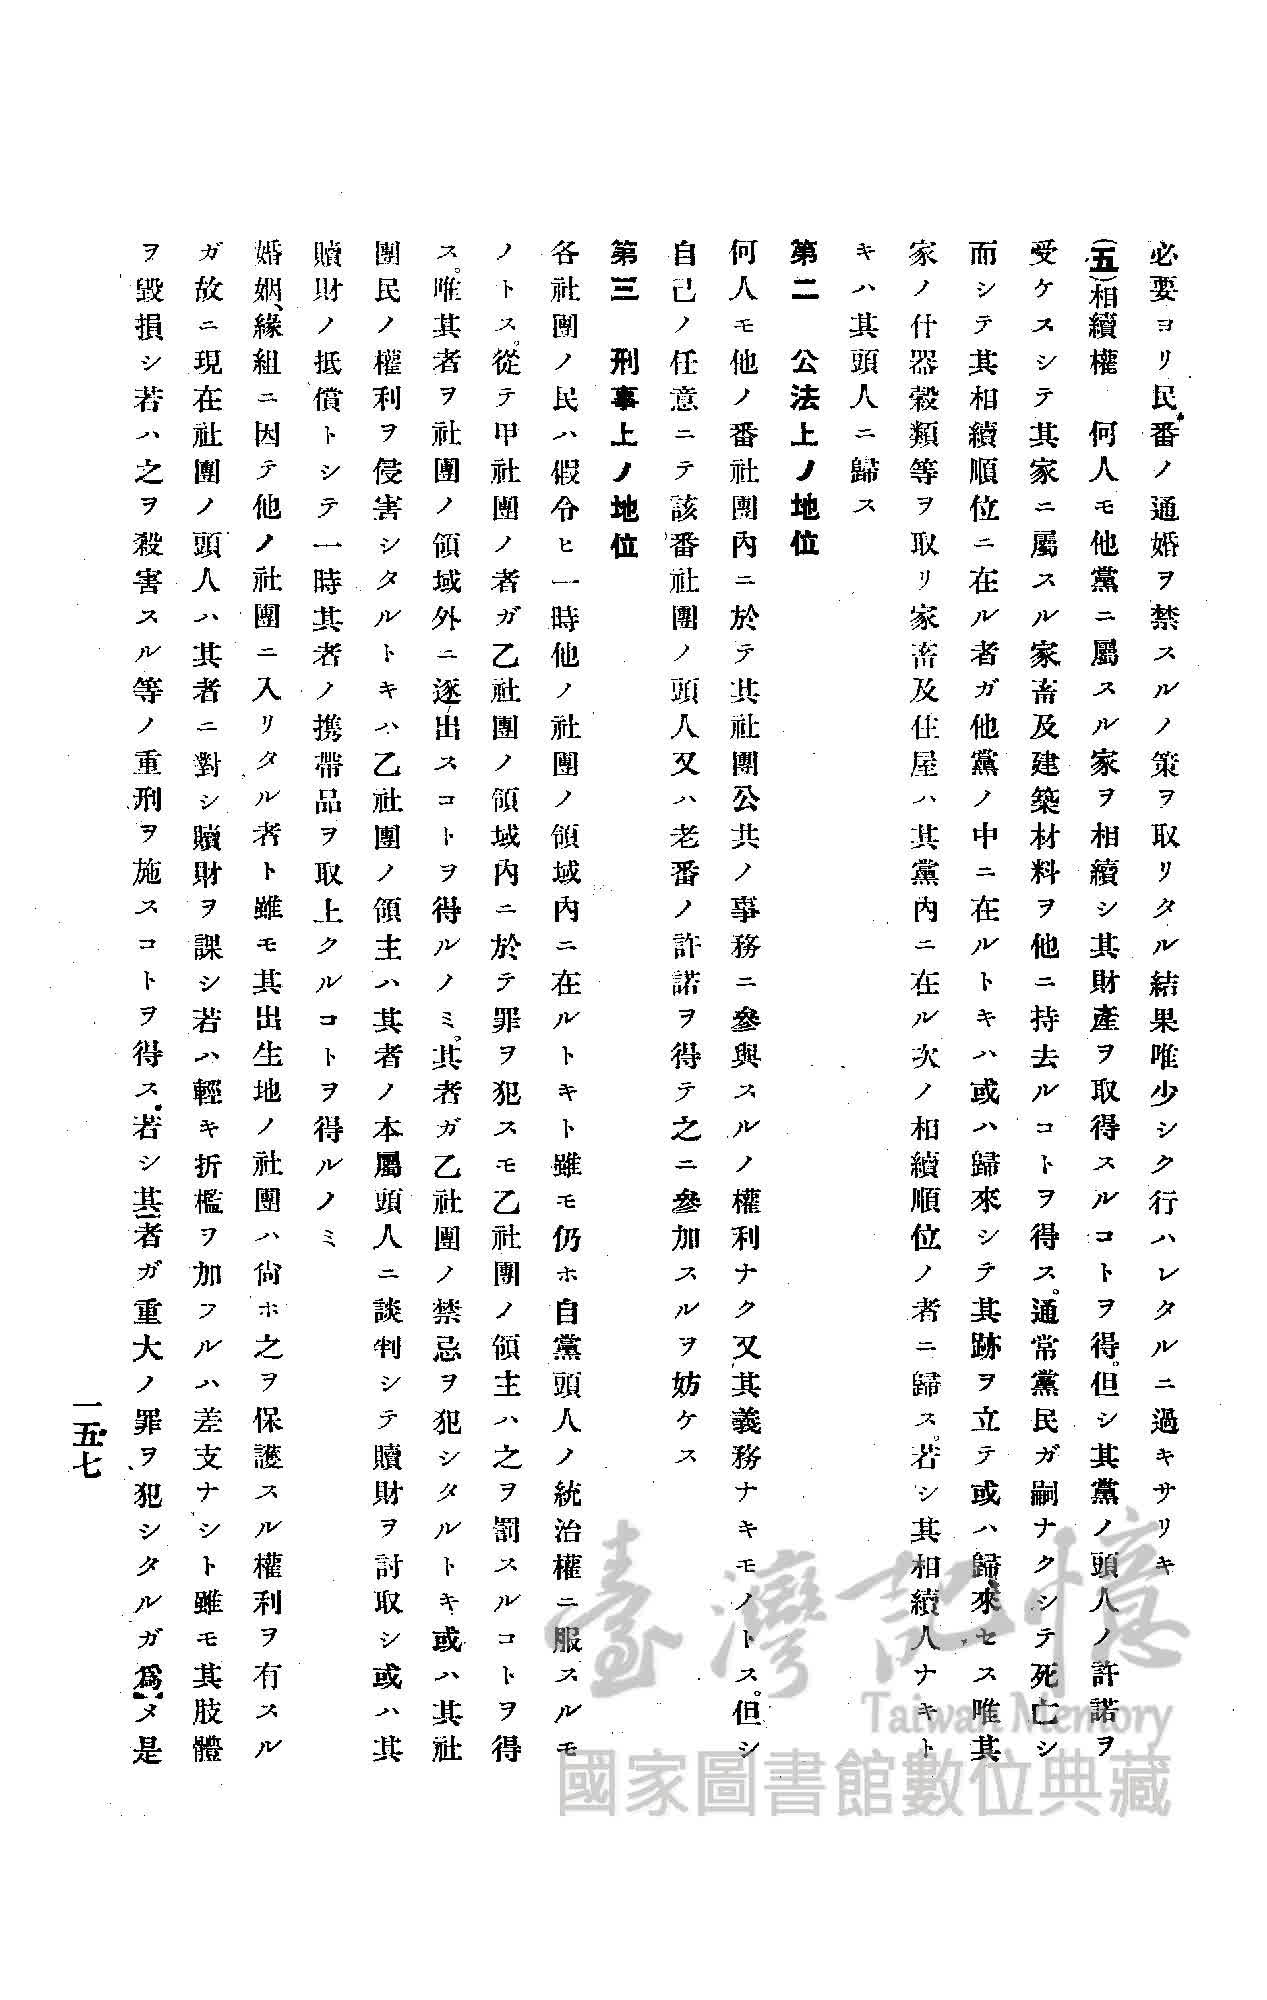 必要ヨリ民番ノ通婚ヲ禁スルノ策ヲ取リタル結果唯少シク行ハレタルニ過キサリキ
(五)相續權　何人モ他黨ニ屬スル家ヲ相續シ其財產ヲ取得スルコトヲ得。但シ其黨ノ頭人ノ許諾ヲ
受ケスシテ其家ニ屬スル家畜及建築材料ヲ他ニ持去ルコトヲ得ス。通常黨民ガ嗣ナクシテ死亡シ
而シテ其相續順位ニ在ル者ガ他黨ノ中ニ在ルトキハ或ハ歸來シテ其跡ヲ立テ或ハ歸來セス唯其
家ノ什器穀類等ヲ取リ家畜及住屋ハ其黨內ニ在ル次ノ相續順位ノ者ニ歸ス。若シ其相續人ナキト
キハ其頭人ニ歸ス
第二　公法上ノ地位
何人モ他ノ番社團內ニ於テ其社團公共ノ事務ニ參與スルノ權利ナク又其義務ナキモノトス。但シ
自己ノ任意ニテ該番社團ノ頭人又ハ老番ノ許諾ヲ得テ之ニ參加スルヲ妨ケス
第三　刑事上ノ地位
各社團ノ民ハ假令ヒ一時他ノ社團ノ領域內ニ在ルトキト雖モ仍ホ自黨頭人ノ統治權ニ服スルモ
ノトス。從テ甲社團ノ者ガ乙社團ノ領域內ニ於テ罪ヲ犯スモ乙社團ノ領主ハ之ヲ罰スルコトヲ得
ス。唯其者ヲ社團ノ領域外ニ逐出スコトヲ得ルノミ。其者ガ乙社團ノ禁忌ヲ犯シタルトキ或ハ其社
團民ノ權利ヲ侵害シタルトキハ乙社團ノ領主ハ其者ノ本屬頭人ニ談判シテ贖財ヲ討取シ或ハ其
贖財ノ抵償トシテ一時其者ノ携帶品ヲ取上クルコトヲ得ルノミ
婚姻、緣組ニ因テ他ノ社團ニ入リタル者ト雖モ其出生地ノ社團ハ尙ホ之ヲ保護スル權利ヲ有スル
ガ故ニ現在社團ノ頭人ハ其者ニ對シ贖財ヲ課シ若ハ輕キ折檻ヲ加フルハ差支ナシト雖モ其肢體
ヲ毀損シ若ハ之ヲ殺害スル等ノ重刑ヲ施スコトヲ得ス。若シ其者ガ重大ノ罪ヲ犯シタルガ爲メ是
一五七
臺灣記憶
Taiwan Memory
國家圖書館數位典藏